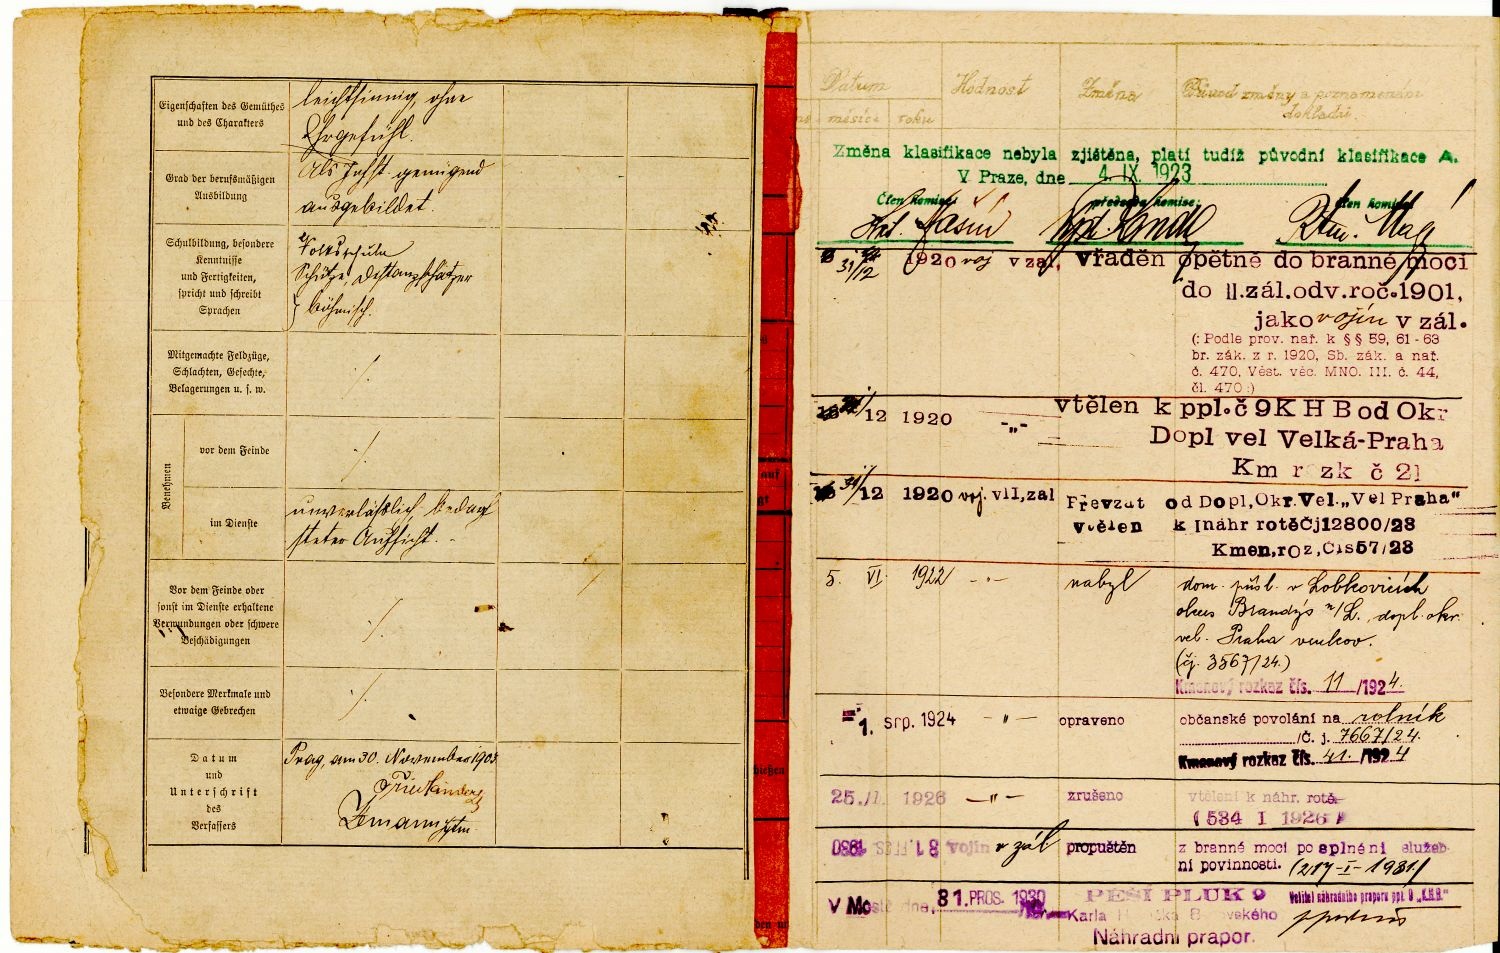 Eigenschaften des Gemüthes
und des Charakters
leichtsinnig, ohne
Ehrgefühl.
Grad der berufsmäßigen
Ausbildung
Als Infst. genügend
ausgebildet.
Schulbildung, besondere
Kenntnisse
und Fertigkeiten,
spricht und schreibt
Sprachen
Volksschule
Schütze, Distanzschätzer
böhmisch.
Mitgemachte Feldzüge,
Schlachten, Gefechte,
Belagerungen u. s. w.
Benehmen
vor dem Feinde
im Dienste
unverläßlich bedarf
steter Aufsicht.
Vor dem Feinde oder
sonst im Dienste erhaltene
Verwundungen oder schwere
Beschädigungen
Besondere Merkmale und
etwaige Gebrechen
Datum
und
Unterschrift
des
Verfassers
Prag, am 30. November 190
Datum Hodnost Změna Důvod změny a poznamenání
dokladů.
měsíce roku
Změna klasifikace nebyla zjištěna, platí tudíž původní klasifikace A.
V Praze, dne 4. IX. 1923
Člen komise: předseda komise: člen komise:
31/12 1920 voj v zál, vřaděn opětně do branné moci
do II.zál.odv.roč.1901,
jako vojín v zál.
(: Podle prov. nař. k §§ 59, 61-63
br. zák. z r. 1920, Sb. zák. a nař.
č. 470, Věst. věc. MNO. III. č. 44,
čl. 470:)
/12 1920 -„- vtělen k ppl.č 9 K H B od Okr
Dopl vel Velká-Praha
Km rozk č 21
31/12 1920 voj. vII,zal Převzat od Dopl,Okr.Vel.„Vel Praha"
vtělen kInáhr rotěčj12800/23
Kmen,roz,čis57/23
5. VI. 1922 -„- nabyl dom. přísl. v Lobkovicích
okres Brandýs n/L. dopl. okr.
vel. Praha venkov.
(čj. 3567/24.)
Kmenový rozkaz čís. 11 /1924.
1. srp. 1924 -„- opraveno občanské povolání na rolník
/Č. j. 7667/24.
Kmenový rozkaz čís. 41. /1924
25./I. 1926 -„- zrušeno vtělení k náhr. rotě
(534 I 1926)
vojín v zál propuštěn z branné moci po splnění služeb-
ní povinnosti. (217-I-1931)
V Mostě dne, 31. PROS. 1930 PĚŠÍ PLUK 9 Velitel náhradního praporu ppl. 9 „K.H.B."
Karla Havlíčka Borovského
Náhradní prapor.